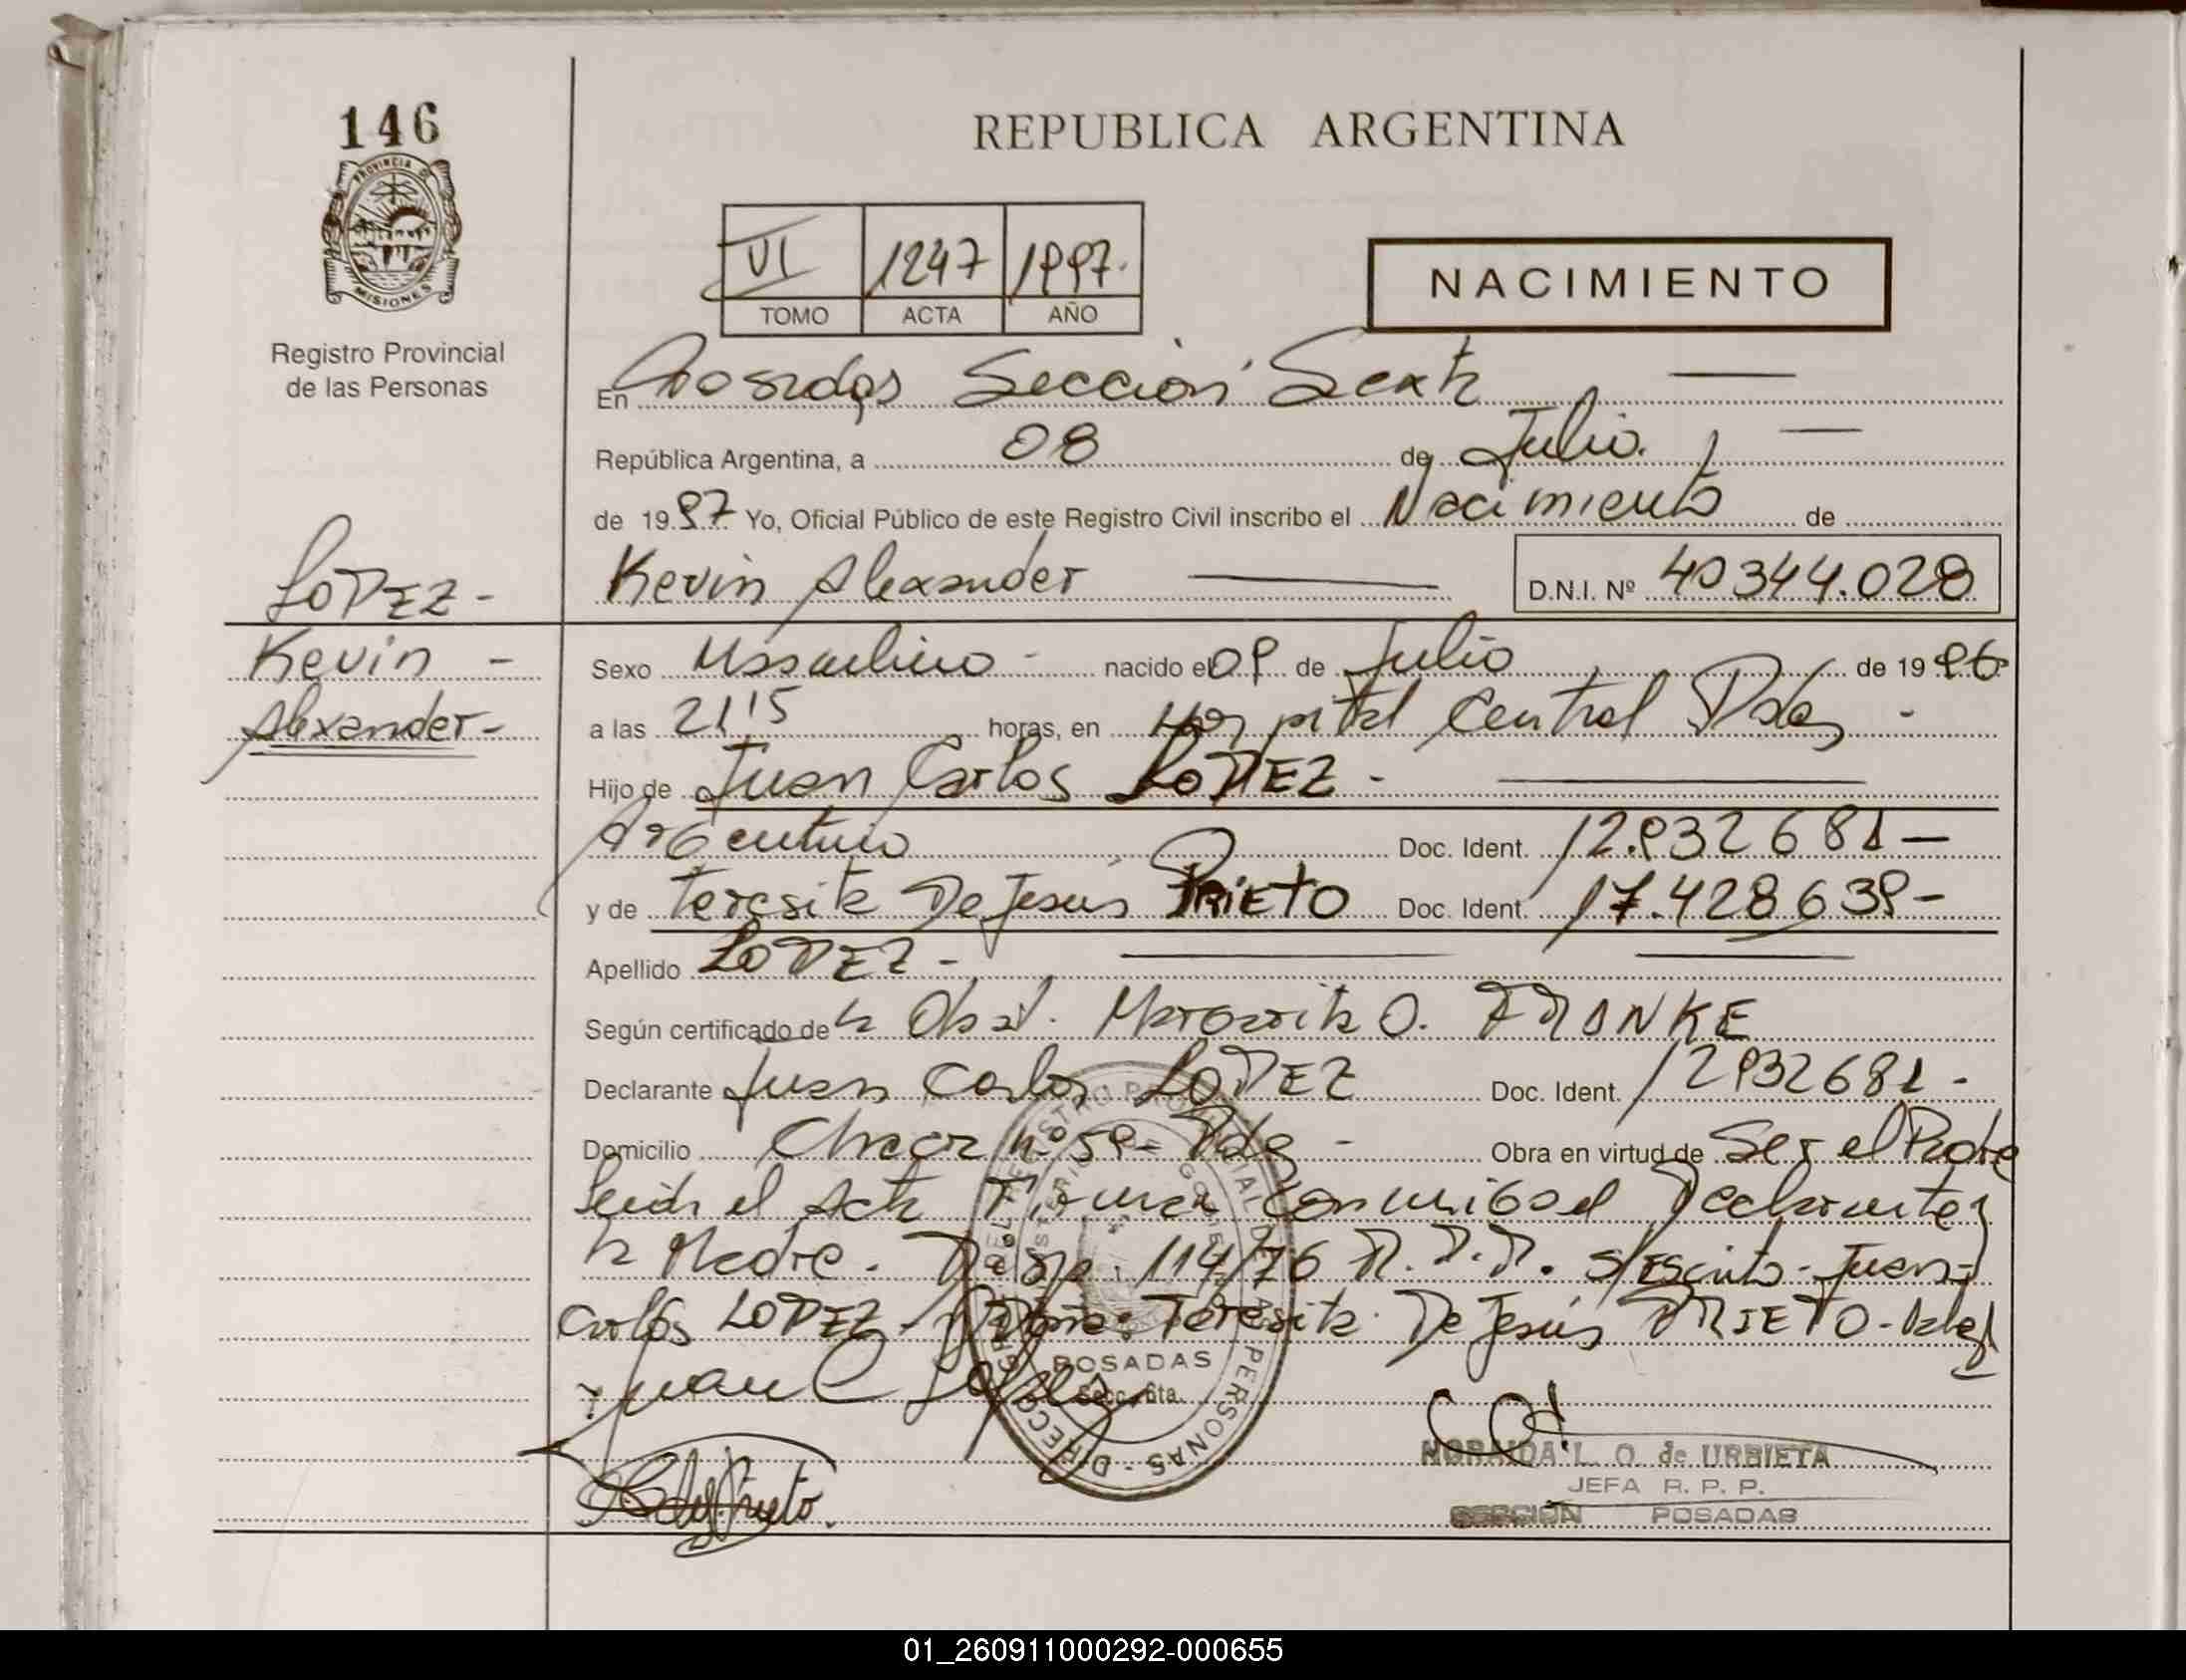 146
PROVINCIA DE
MISIONES
Registro Provincial
de las Personas
REPUBLICA ARGENTINA
VI 1247 1997.
TOMO ACTA AÑO
NACIMIENTO
En Posadas Sección Sexta
República Argentina, a 08 de Julio.
de 1997 Yo, Oficial Público de este Registro Civil inscribo el Nacimiento de
LOPEZ-
Kevin Alexander D.N.I. Nº 40344.028
Kevin -
Alexander-
Sexo Masculino - nacido el 09 de Julio de 1996
a las 2115 horas, en Hospital Central Pdas -
Hijo de Juan Carlos LOPEZ -
Argentino Doc. Ident. 12.932681-
y de Teresita De Jesús PRIETO Doc. Ident. 17.428639-
Apellido LOPEZ -
Según certificado de la Obst. Margarita O. FRANKE
Declarante Juan Carlos LOPEZ Doc. Ident. 12932681-
Domicilio Chacra nº 59- Pdas - Obra en virtud de Ser el Padre
Leída el Acta Firman Conmigo el Declarante y
la Madre. Disp. 114/76 R.P.P. S/Escrito-Juan
Carlos LOPEZ- Teresita De Jesús PRIETO-Vale
Juan C Lopez
POSADAS
Secc. 6ta.
DIRECCION GRAL DEL REGISTRO PROVINCIAL DE LAS PERSONAS
MINISTERIO DE GOBIERNO
Prieto.
NORAIDA L. O. de URBIETA
JEFA R. P. P.
SECCION POSADAS
01_260911000292-000655